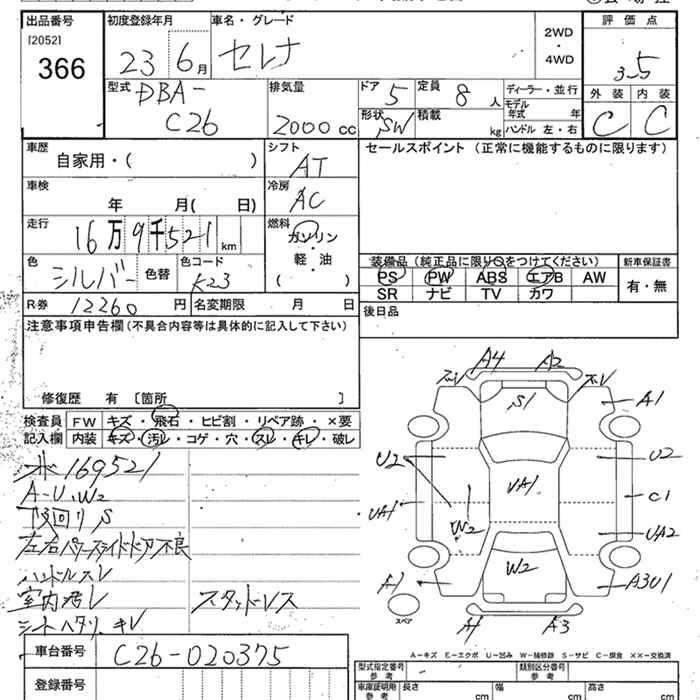 出品番号
[2052]
366
初度登録年月
23 6月
車名・グレード
セレナ
2WD
・
4WD
評価点
3.5
外装 内装
C C
型式
DBA-
C26
排気量
2000 cc
ドア
5
定員
8 人
形状
SW
積載
kg
ディーラー・並行
モデル
年式 年
ハンドル 左・右
車歴
自家用・( )
シフト
AT
車検
年 月( 日)
冷房
AC
走行
16万9千521km
燃料
ガソリン
・
軽・油
( )
色
シルバー
色替
色コード
K23
R券
12260円
名変期限 月 日
セールスポイント (正常に機能するものに限ります)
装備品(純正品に限り○をつけてください)
新車保証書
PS PW ABS エアB AW
SR ナビ TV カワ
有・無
後日品
注意事項申告欄(不具合内容等は具体的に記入して下さい)
修復歴 有 〔箇所 〕
検査員
記入欄
FW キズ・飛石・ヒビ割・リペア跡・×要
内装 キズ・汚レ・コゲ・穴・スレ・キレ・破レ
169521
A-U、W2
下回り S
左右パワースライドドア不良
ハンドルスレ
室内汚レ
シートヘタリ、キレ
スタッドレス
A4 A2
S1
A1
U2 U2
UA1
UA1
C1
W2
UA2
W2
A1
A3U1
スペア
A1 A3
A-キズ E-エクボ U-凹み W-補修跡 S-サビ C-腐食 ××-交換済
車台番号
C26-020375
登録番号
型式指定番号
参考
類別区分番号
参考
車庫証明用
参考
長さ cm
幅 cm
高さ cm